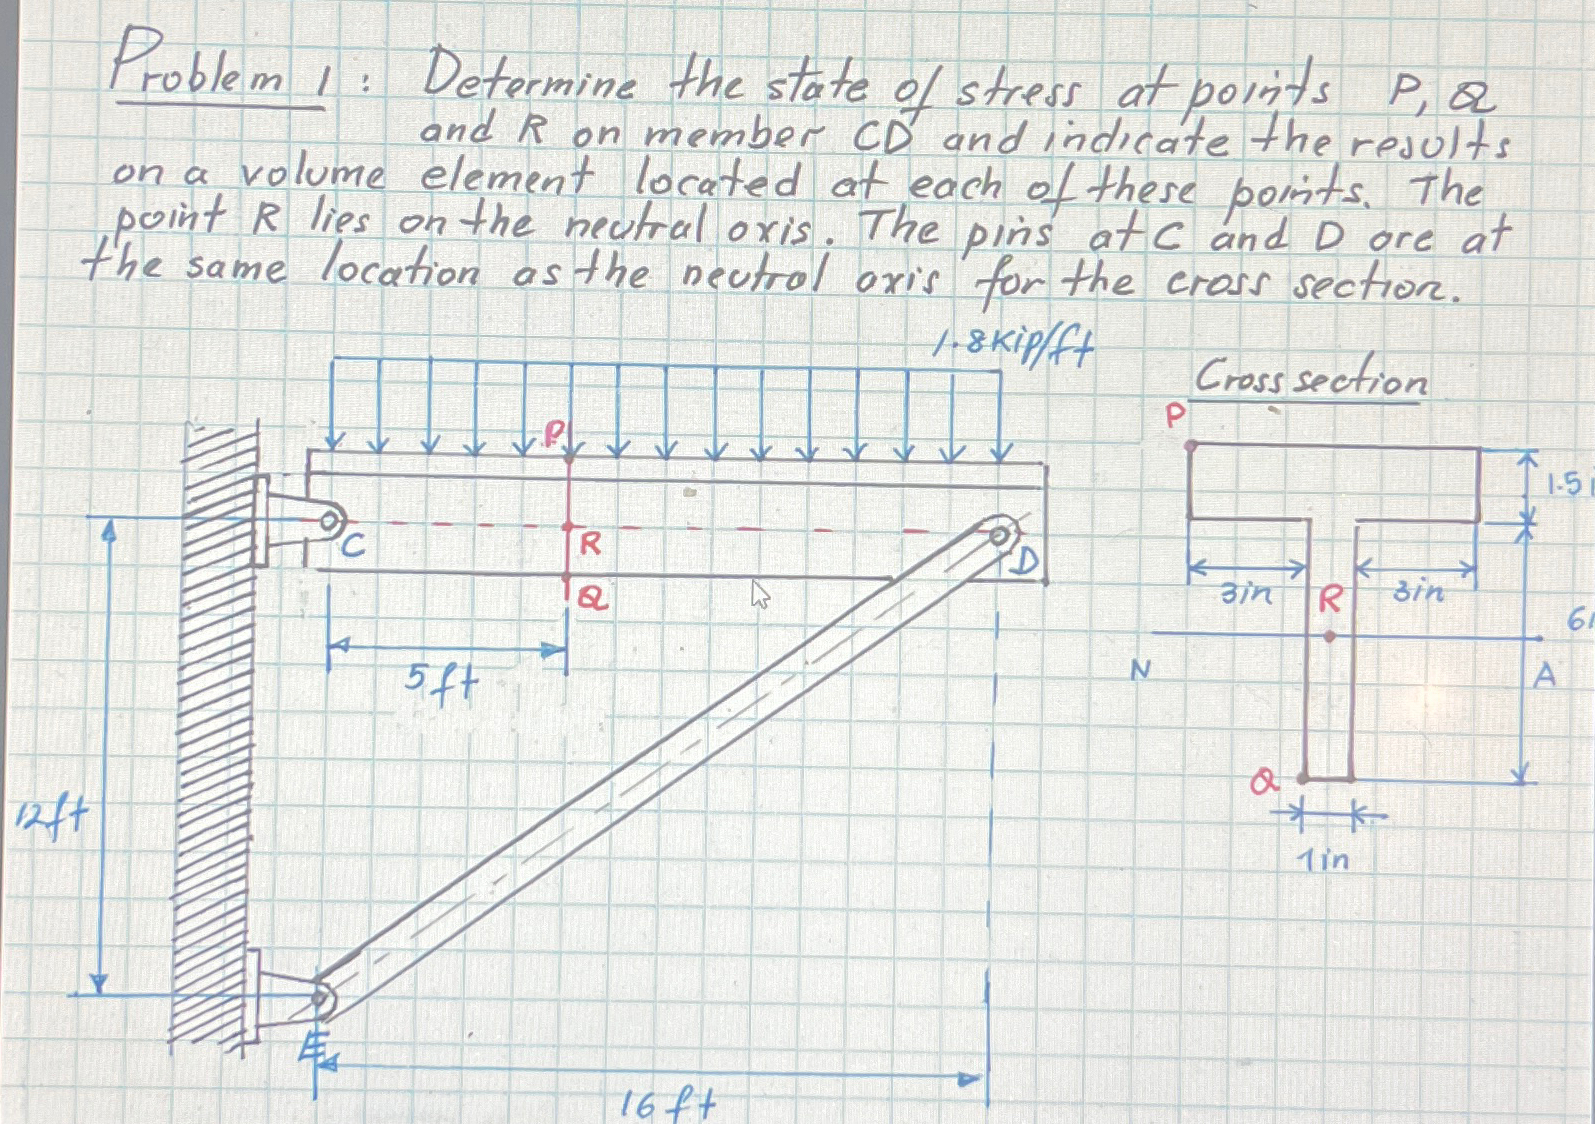 Problem 1: Determine the state of stress at points P, Q
and R on member CD and indicate the results
on a volume element located at each of these points. The
point R lies on the neutral axis. The pins at C and D are at
the same location as the neutral axis for the cross section.
1.8 kip/ft
Cross section
P
P
1.5
C
R
D
3in
R
3in
Q
N
A
5ft
Q
12ft
1in
E
16ft